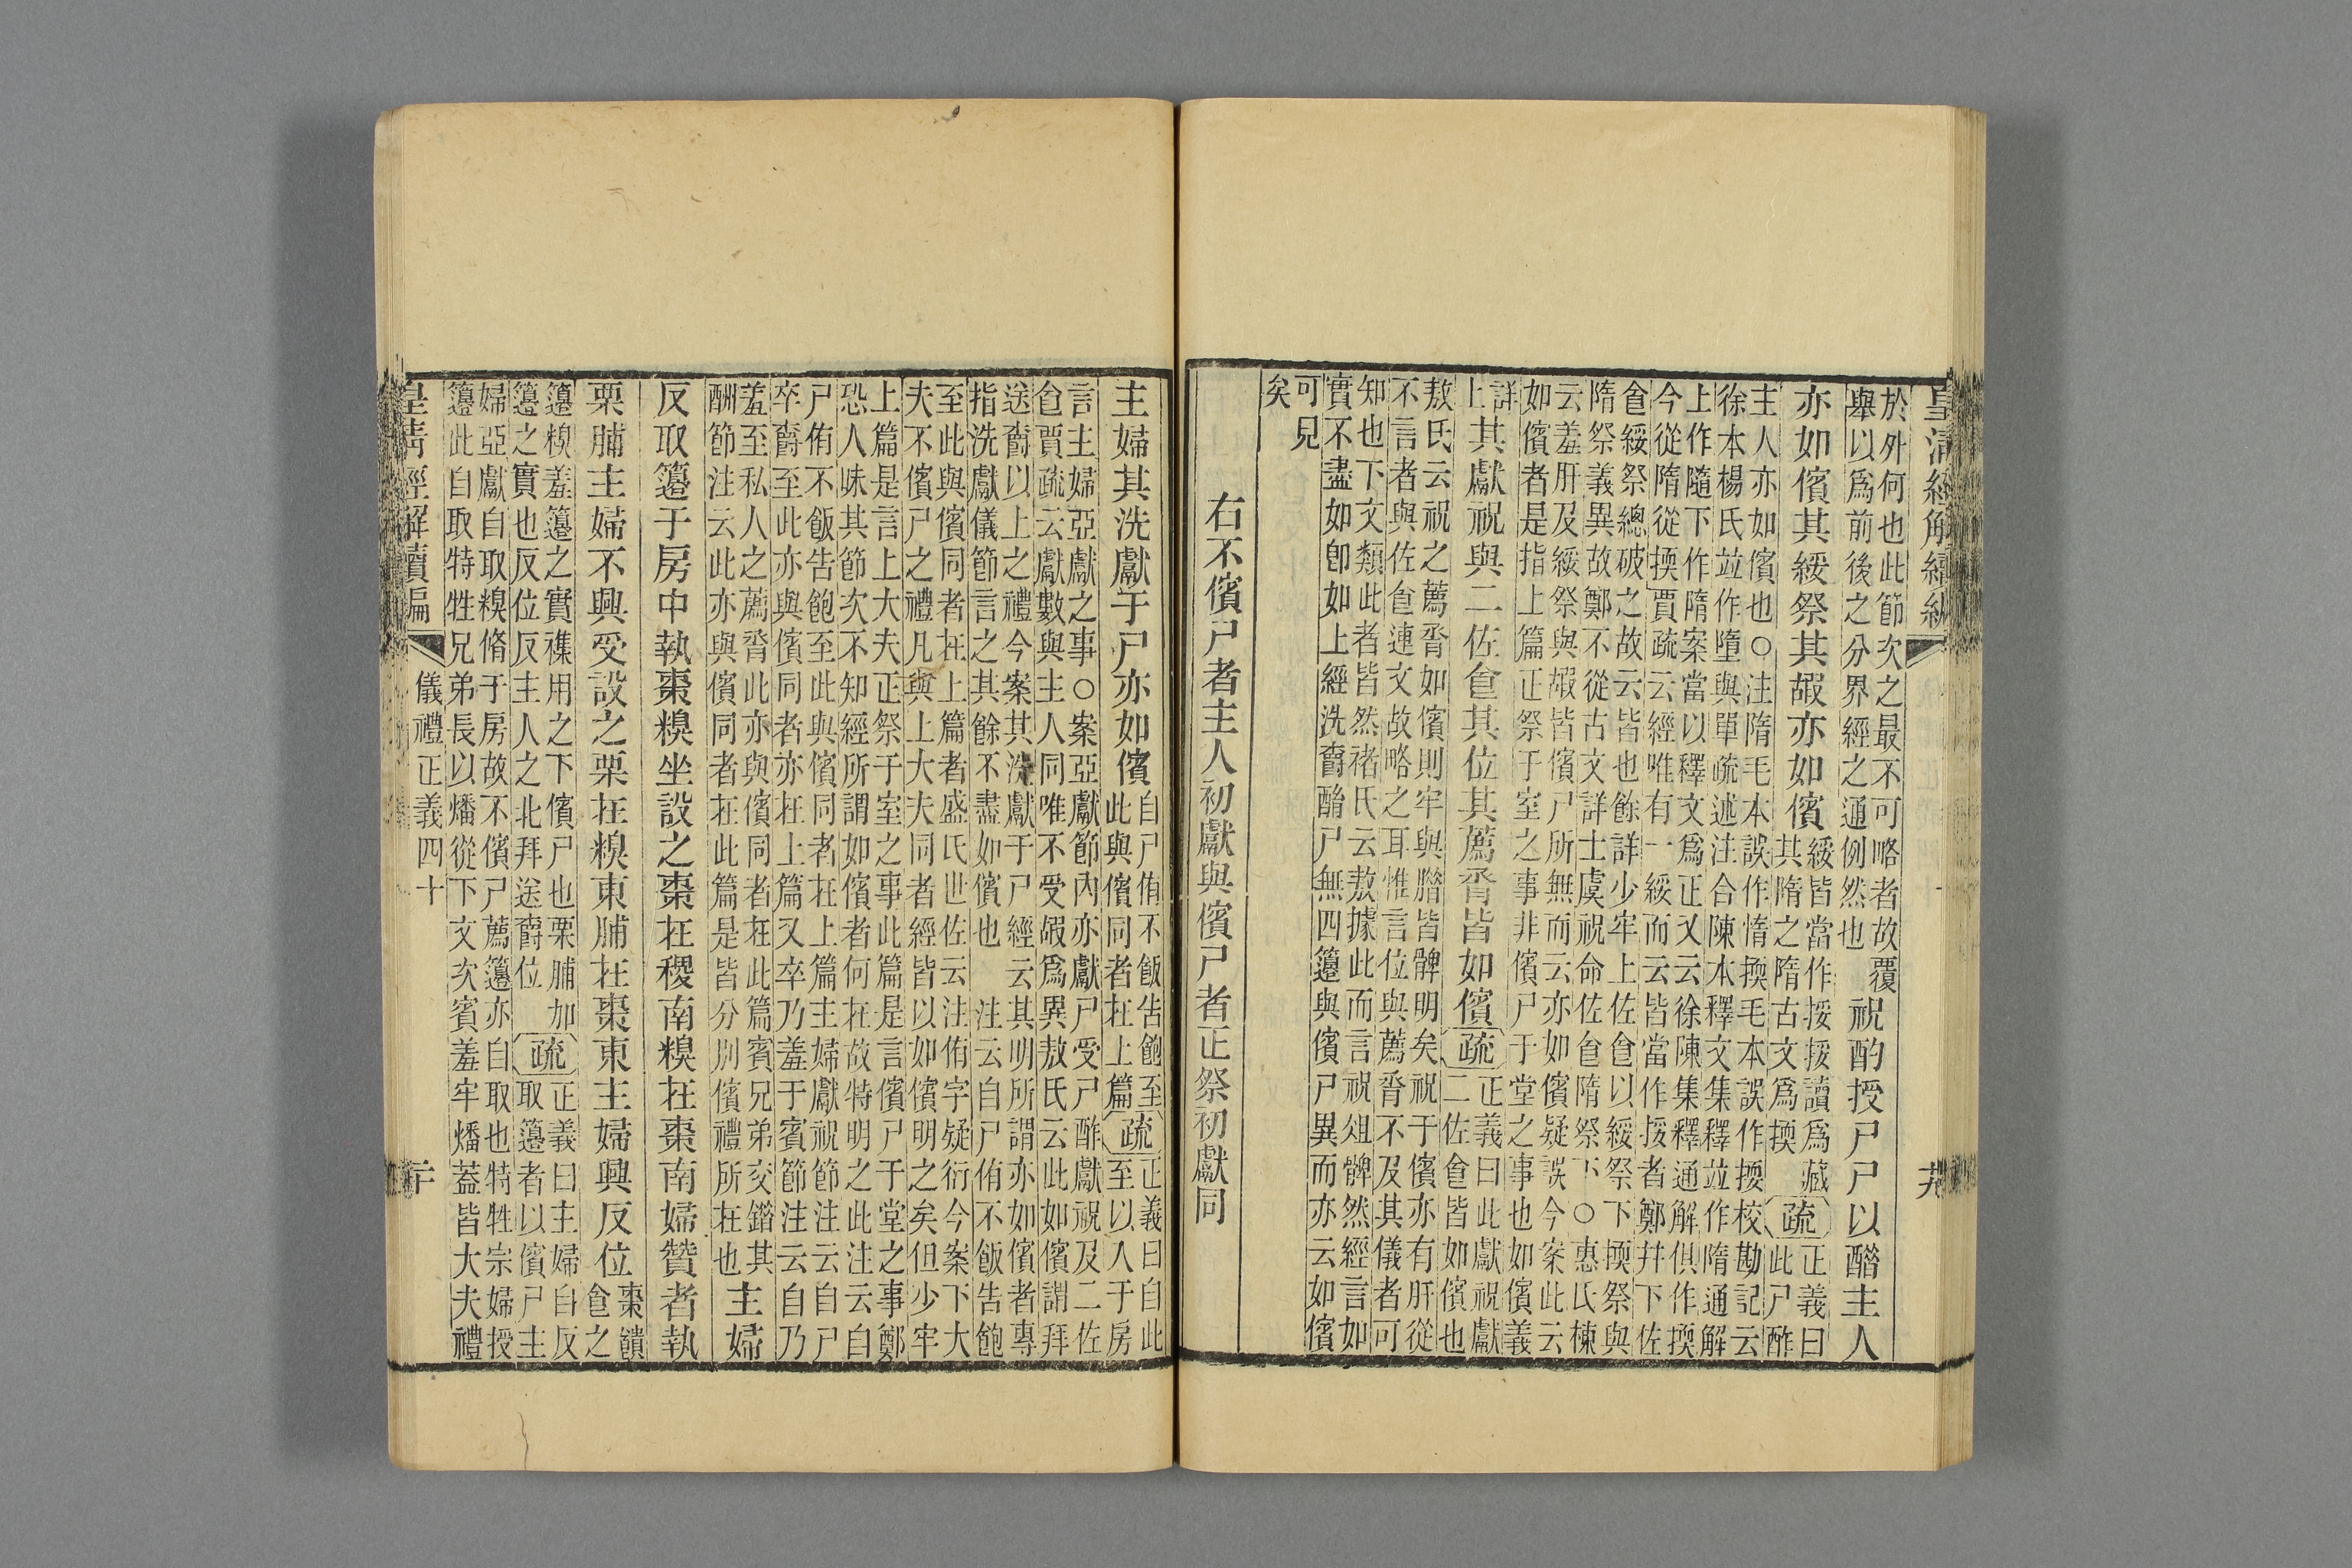 皇清經解續編
九
於外何也此節次之最不可略者故覆
舉以爲前後之分界經之通例然也
祝酌授尸尸以醋主人
亦如儐其綏祭其嘏亦如儐
綏皆當作挼挼讀爲藏
其隋之隋古文爲㨎
疏
正義曰
此尸酢
主人亦如儐也○注隋毛本誤作惰㨎毛本誤作㨎校勘記云
徐本楊氏竝作墮與單疏述注合陳本釋文集釋竝作隋通解
上作隨下作隋案當以釋文爲正又云徐陳集釋通解俱作㨎
今從隋從㨎賈疏云經唯有一綏而云皆當作挼者鄭幷下佐
食綏祭總破之故云皆也餘詳少牢上佐食以綏祭下㨎祭與
隋祭義異故鄭不從古文詳士虞祝命佐食隋祭下○惠氏棟
云羞肝及綏祭與嘏皆儐尸所無而云亦如儐疑誤今案此云
如儐者是指上篇正祭于室之事非儐尸于堂之事也如儐義
詳
上
其獻祝與二佐食其位其薦脀皆如儐
疏
正義曰此獻祝獻
二佐食皆如儐也
敖氏云祝之薦脀如儐則牢與腊皆髀明矣祝于儐亦有肝從
不言者與佐食連文故略之耳惟言位與薦脀不及其儀者可
知也下文類此者皆然褚氏云敖據此而言祝俎髀然經言如
實不盡如卽如上經洗爵酳尸無四籩與儐尸異而亦云如儐
可見
矣
右不儐尸者主人初獻與儐尸者正祭初獻同
主婦其洗獻于尸亦如儐
自尸侑不飯告飽至
此與儐同者在上篇
疏
正義曰自此
至以入于房
言主婦亞獻之事○案亞獻節內亦獻尸受尸酢獻祝及二佐
食賈疏云獻數與主人同唯不受嘏爲異敖氏云此如儐謂拜
送爵以上之禮今案其洗獻于尸經云其明所謂亦如儐者專
指洗獻儀節言之其餘不盡如儐也 注云自尸侑不飯告飽
至此與儐同者在上篇者盛氏世佐云注侑字疑衍今案下大
夫不儐尸之禮凡與上大夫同者經皆以如儐明之矣但少牢
上篇是言上大夫正祭于室之事此篇是言儐尸于堂之事鄭
恐人昧其節次不知經所謂如儐者何在故特明之此注云自
尸侑不飯告飽至此與儐同者在上篇主婦獻祝節注云自尸
卒爵至此亦與儐同者亦在上篇又卒乃羞于賓節注云自乃
羞至私人之薦脀此亦與儐同者在此篇賓兄弟交錯其
酬節注云此亦與儐同者在此篇是皆分別儐禮所在也
主婦
反取籩于房中執棗糗坐設之棗在稷南糗在棗南婦贊者執
栗脯主婦不興受設之栗在糗東脯在棗東主婦興反位
棗饋
食之
籩糗羞籩之實襍用之下儐尸也栗脯加
籩之實也反位反主人之北拜送爵位
疏
正義曰主婦自反
取籩者以儐尸主
婦亞獻自取糗脩于房故不儐尸薦籩亦自取也特牲宗婦授
籩此自取特牲兄弟長以燔從下文次賓羞牢燔蓋皆大夫禮
皇清經解續編
儀禮正義四十
二十